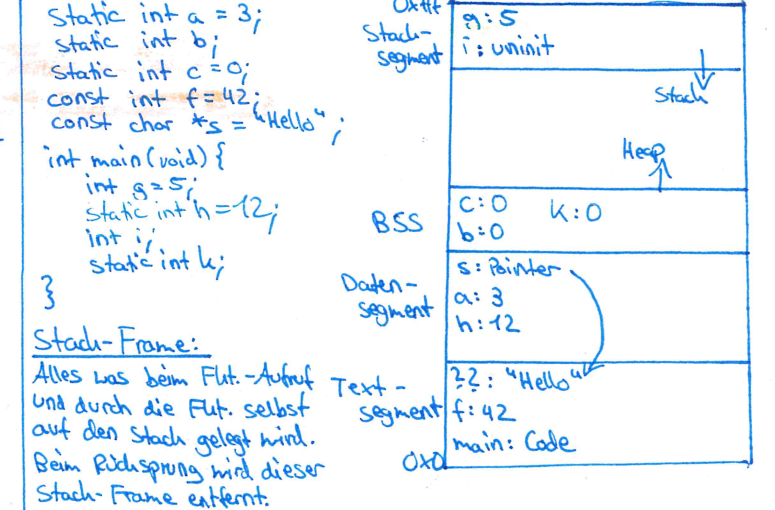 static int a = 3;
static int b;
static int c = 0;
const int f = 42;
const char *s = "Hello";
int main(void) {
int g = 5;
static int h = 12;
int i;
static int k;
}
Stack-Frame:
Alles was beim Fkt.-Aufruf
und durch die Fkt. selbst
auf den Stack gelegt wird.
Beim Rücksprung wird dieser
Stack-Frame entfernt.
Stack-
segment
g: 5
i: uninit
Stack
Heap
BSS
c: 0 k: 0
b: 0
Daten-
segment
s: Pointer
a: 3
h: 12
Text-
segment
??: "Hello"
f: 42
main: Code
0x0